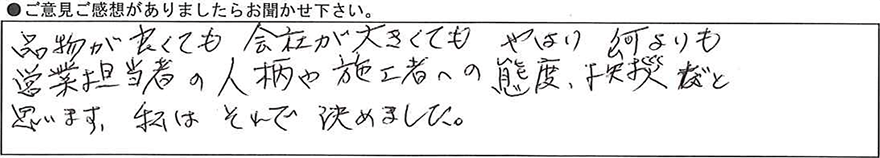 ●ご意見ご感想がありましたらお聞かせ下さい。
品物が良くても 会社が大きくても やはり 何よりも
営業担当者の人柄や施工者への態度、挨拶だと
思います。私は それで 決めました。